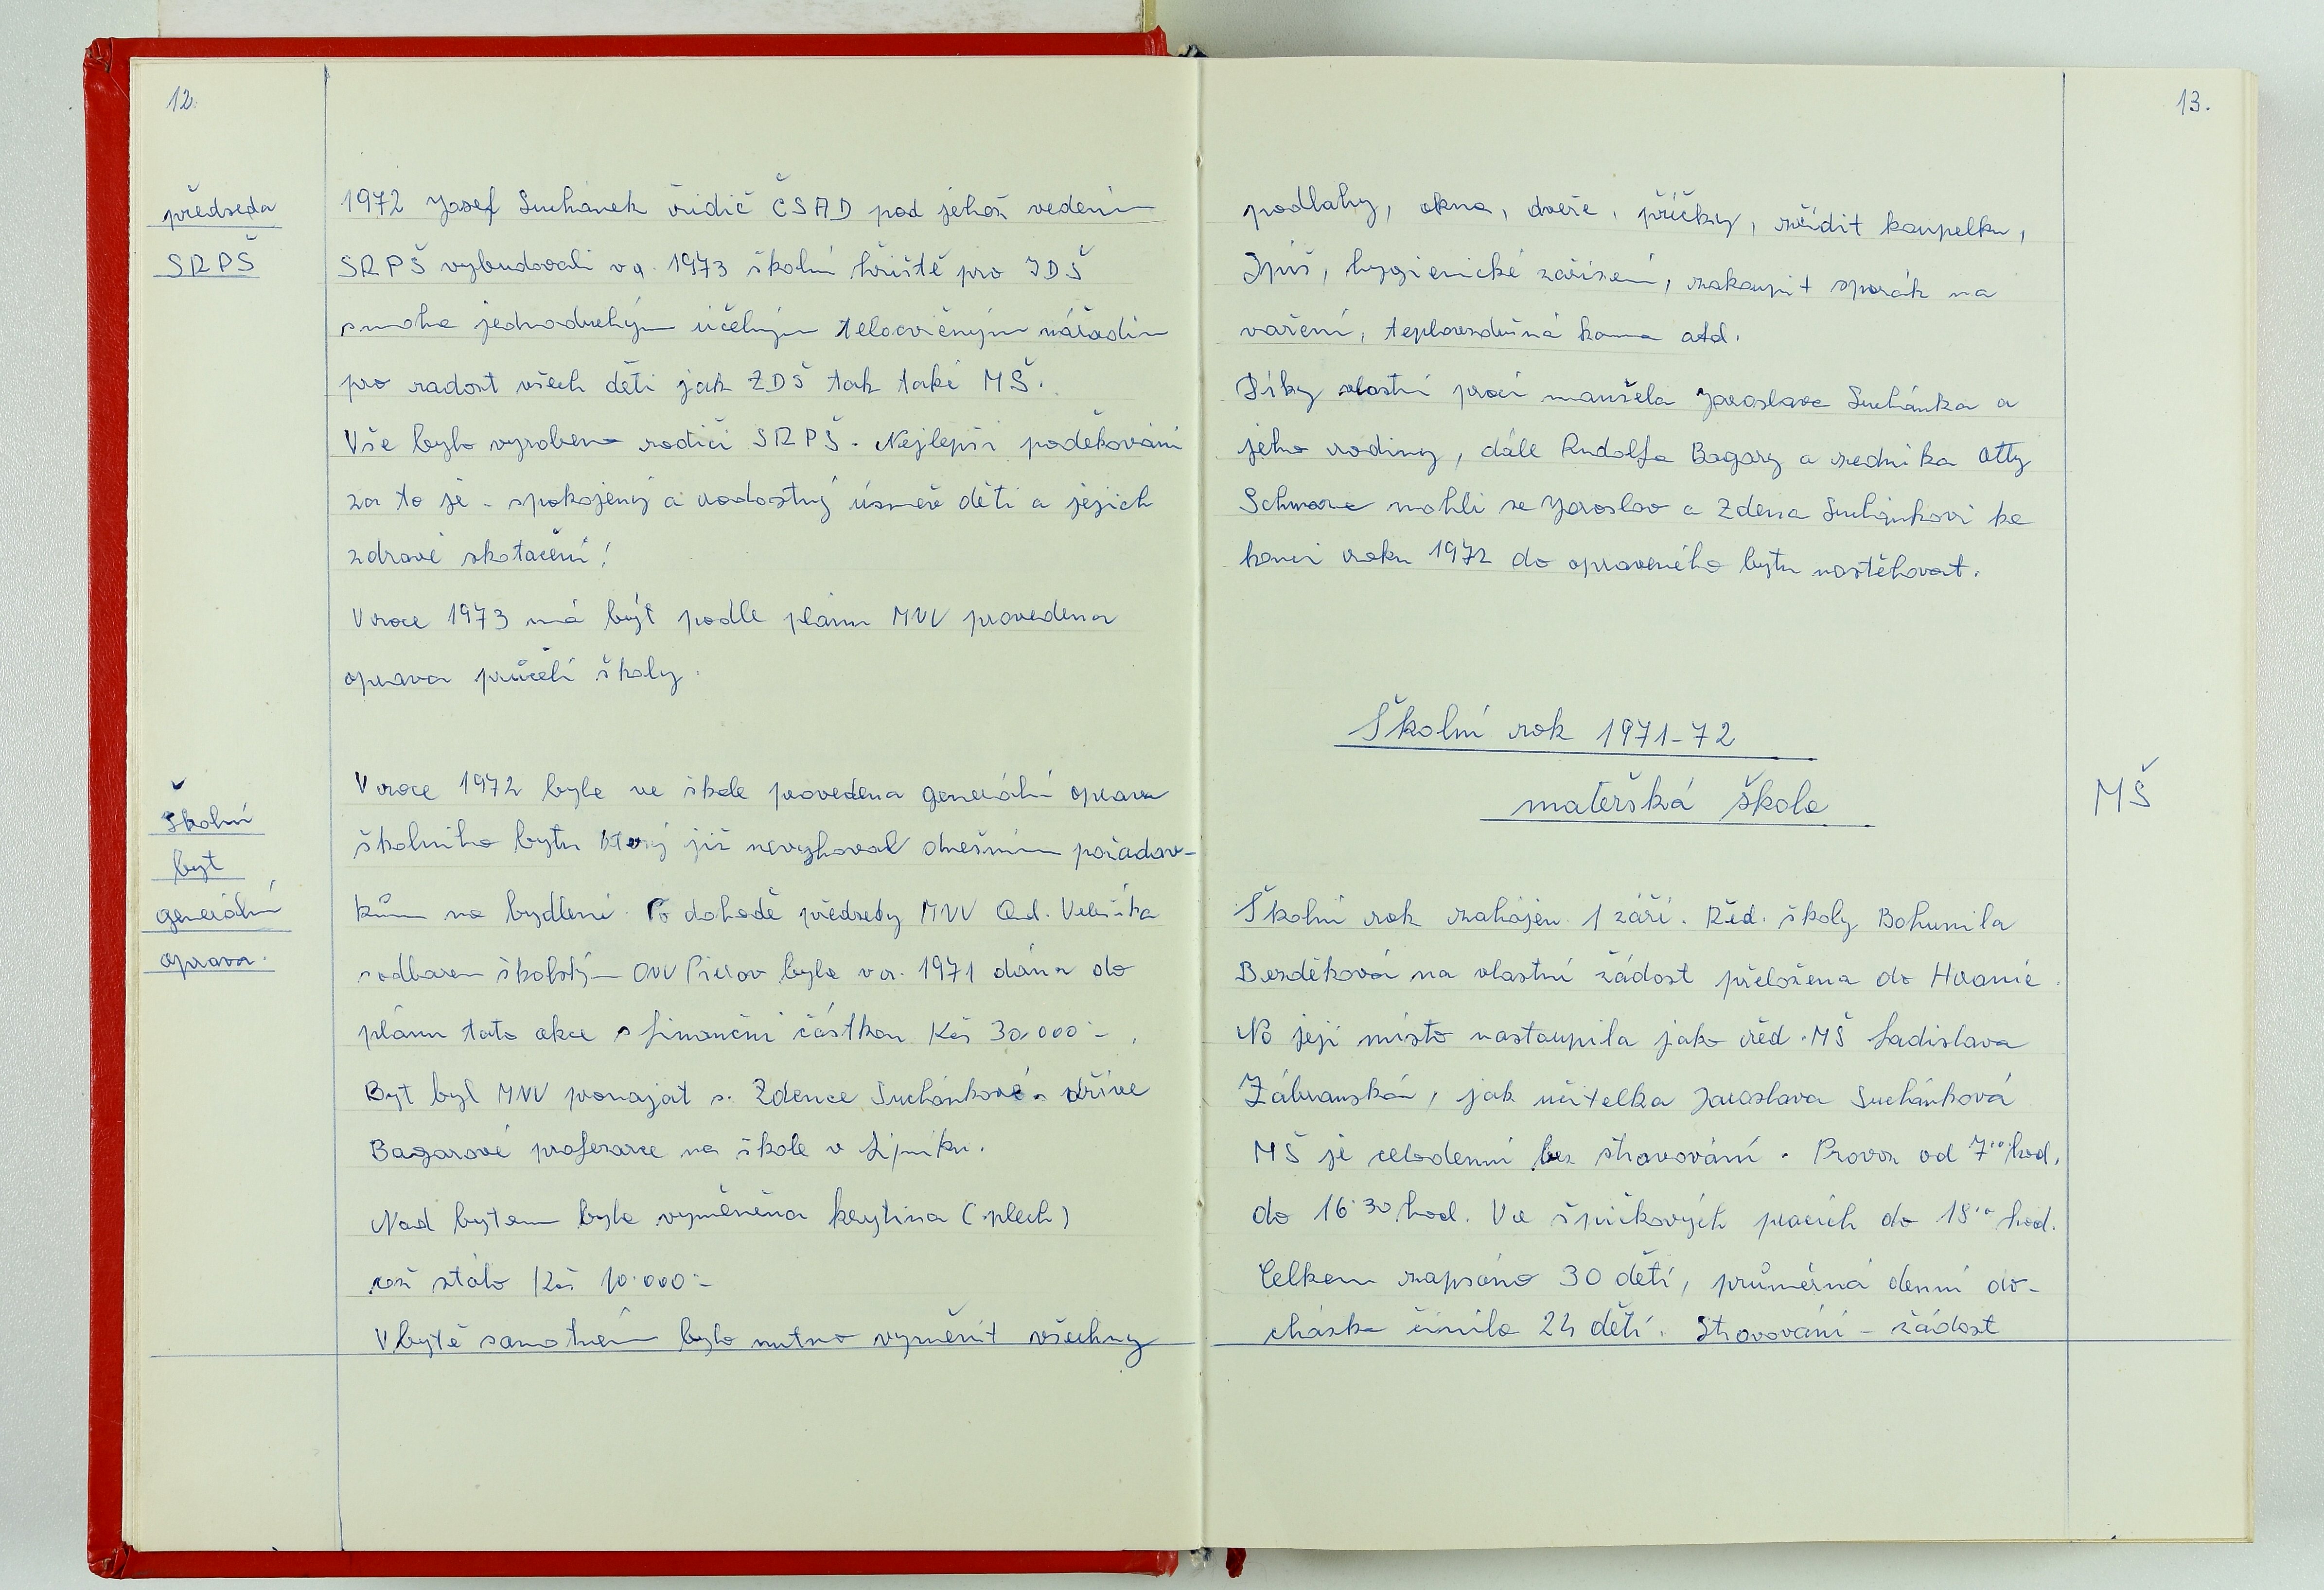 12.
předseda
SRPŠ
1972 Josef Suchánek řidič ČSAD pod jehož vedením
SRPŠ vybudovali v r. 1973 školní hřiště pro ZDŠ
s moha jednoduchým účelným telocvičným nářadím
pro radost všech dětí jak ZDŠ tak také MŠ.
Vše bylo vyrobeno rodiči SRPŠ. Nejlepší poděkování
za to je - spokojený a radostný úsměv dětí a jejich
zdravé skotačení!
V roce 1973 má být podle plánu MNV provedena
oprava průčelí školy.
Školní
byt
generální
oprava.
V roce 1972 byla ve škole provedena generální oprava
školního bytu který již nevyhoval dnešním požadav-
kům na bydlení. Po dohodě předsedy MNV Old. Velešíka
s odborem školským ONV Přerov byla v r. 1971 dána do
plánu tato akce s finanční částkou Kčs 30.000.-
Byt byl MNV pronajat s. Zdence Suchánkové. dříve
Bagarové profesorce na škole v Lipníku.
Nad bytem byla vyměněna krytina (plech)
což stálo Kčs 10.000.-
V bytě samotném bylo nutno vyměnit všechny
13.
podlahy, okna, dveře, příčky, zřídit koupelku,
Spíš, hygienické zařízení, zakoupit sporák na
vaření, teplovzdušná kamna atd.
Díky vlastní prací manžela Jaroslava Suchánka a
jeho rodiny, dále Rudolfa Bagary a zedníka Otty
Schwarze mohli se Jaroslav a Zdena Suchánkovi ke
konci roku 1972 do opraveného bytu nastěhovat.
Školní rok 1971-72
mateřská škola
MŠ
Školní rok zahájen 1 září. Řed. školy Bohumila
Bezděková na vlastní žádost přeložena do Hranic.
Na její místo nastoupila jako řed. MŠ Ladislava
Zábranská, jak učitelka Jaroslava Suchánková
MŠ je celodenní bez stravování. Provoz od 7⁰⁰ hod.
do 16.³⁰ hod. Ve špičkových pracích do 18⁰⁰ hod.
Celkem zapsáno 30 dětí, průměrná denní do-
cházka činila 24 dětí. Stravování - žádost